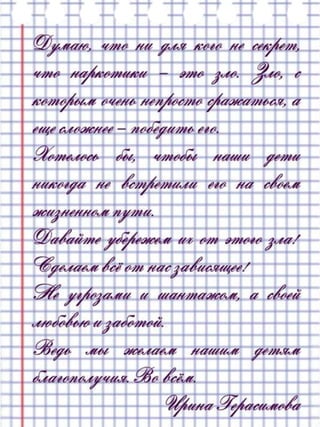 Думаю, что ни для кого не секрет,
что наркотики – это зло. Зло, с
которым очень непросто сражаться, а
еще сложнее – победить его.
Хотелось бы, чтобы наши дети
никогда не встретили его на своем
жизненном пути.
Давайте убережем их от этого зла!
Сделаем всё от нас зависящее!
Не угрозами и шантажом, а своей
любовью и заботой.
Ведь мы желаем нашим детям
благополучия. Во всём.
Ирина Герасимова